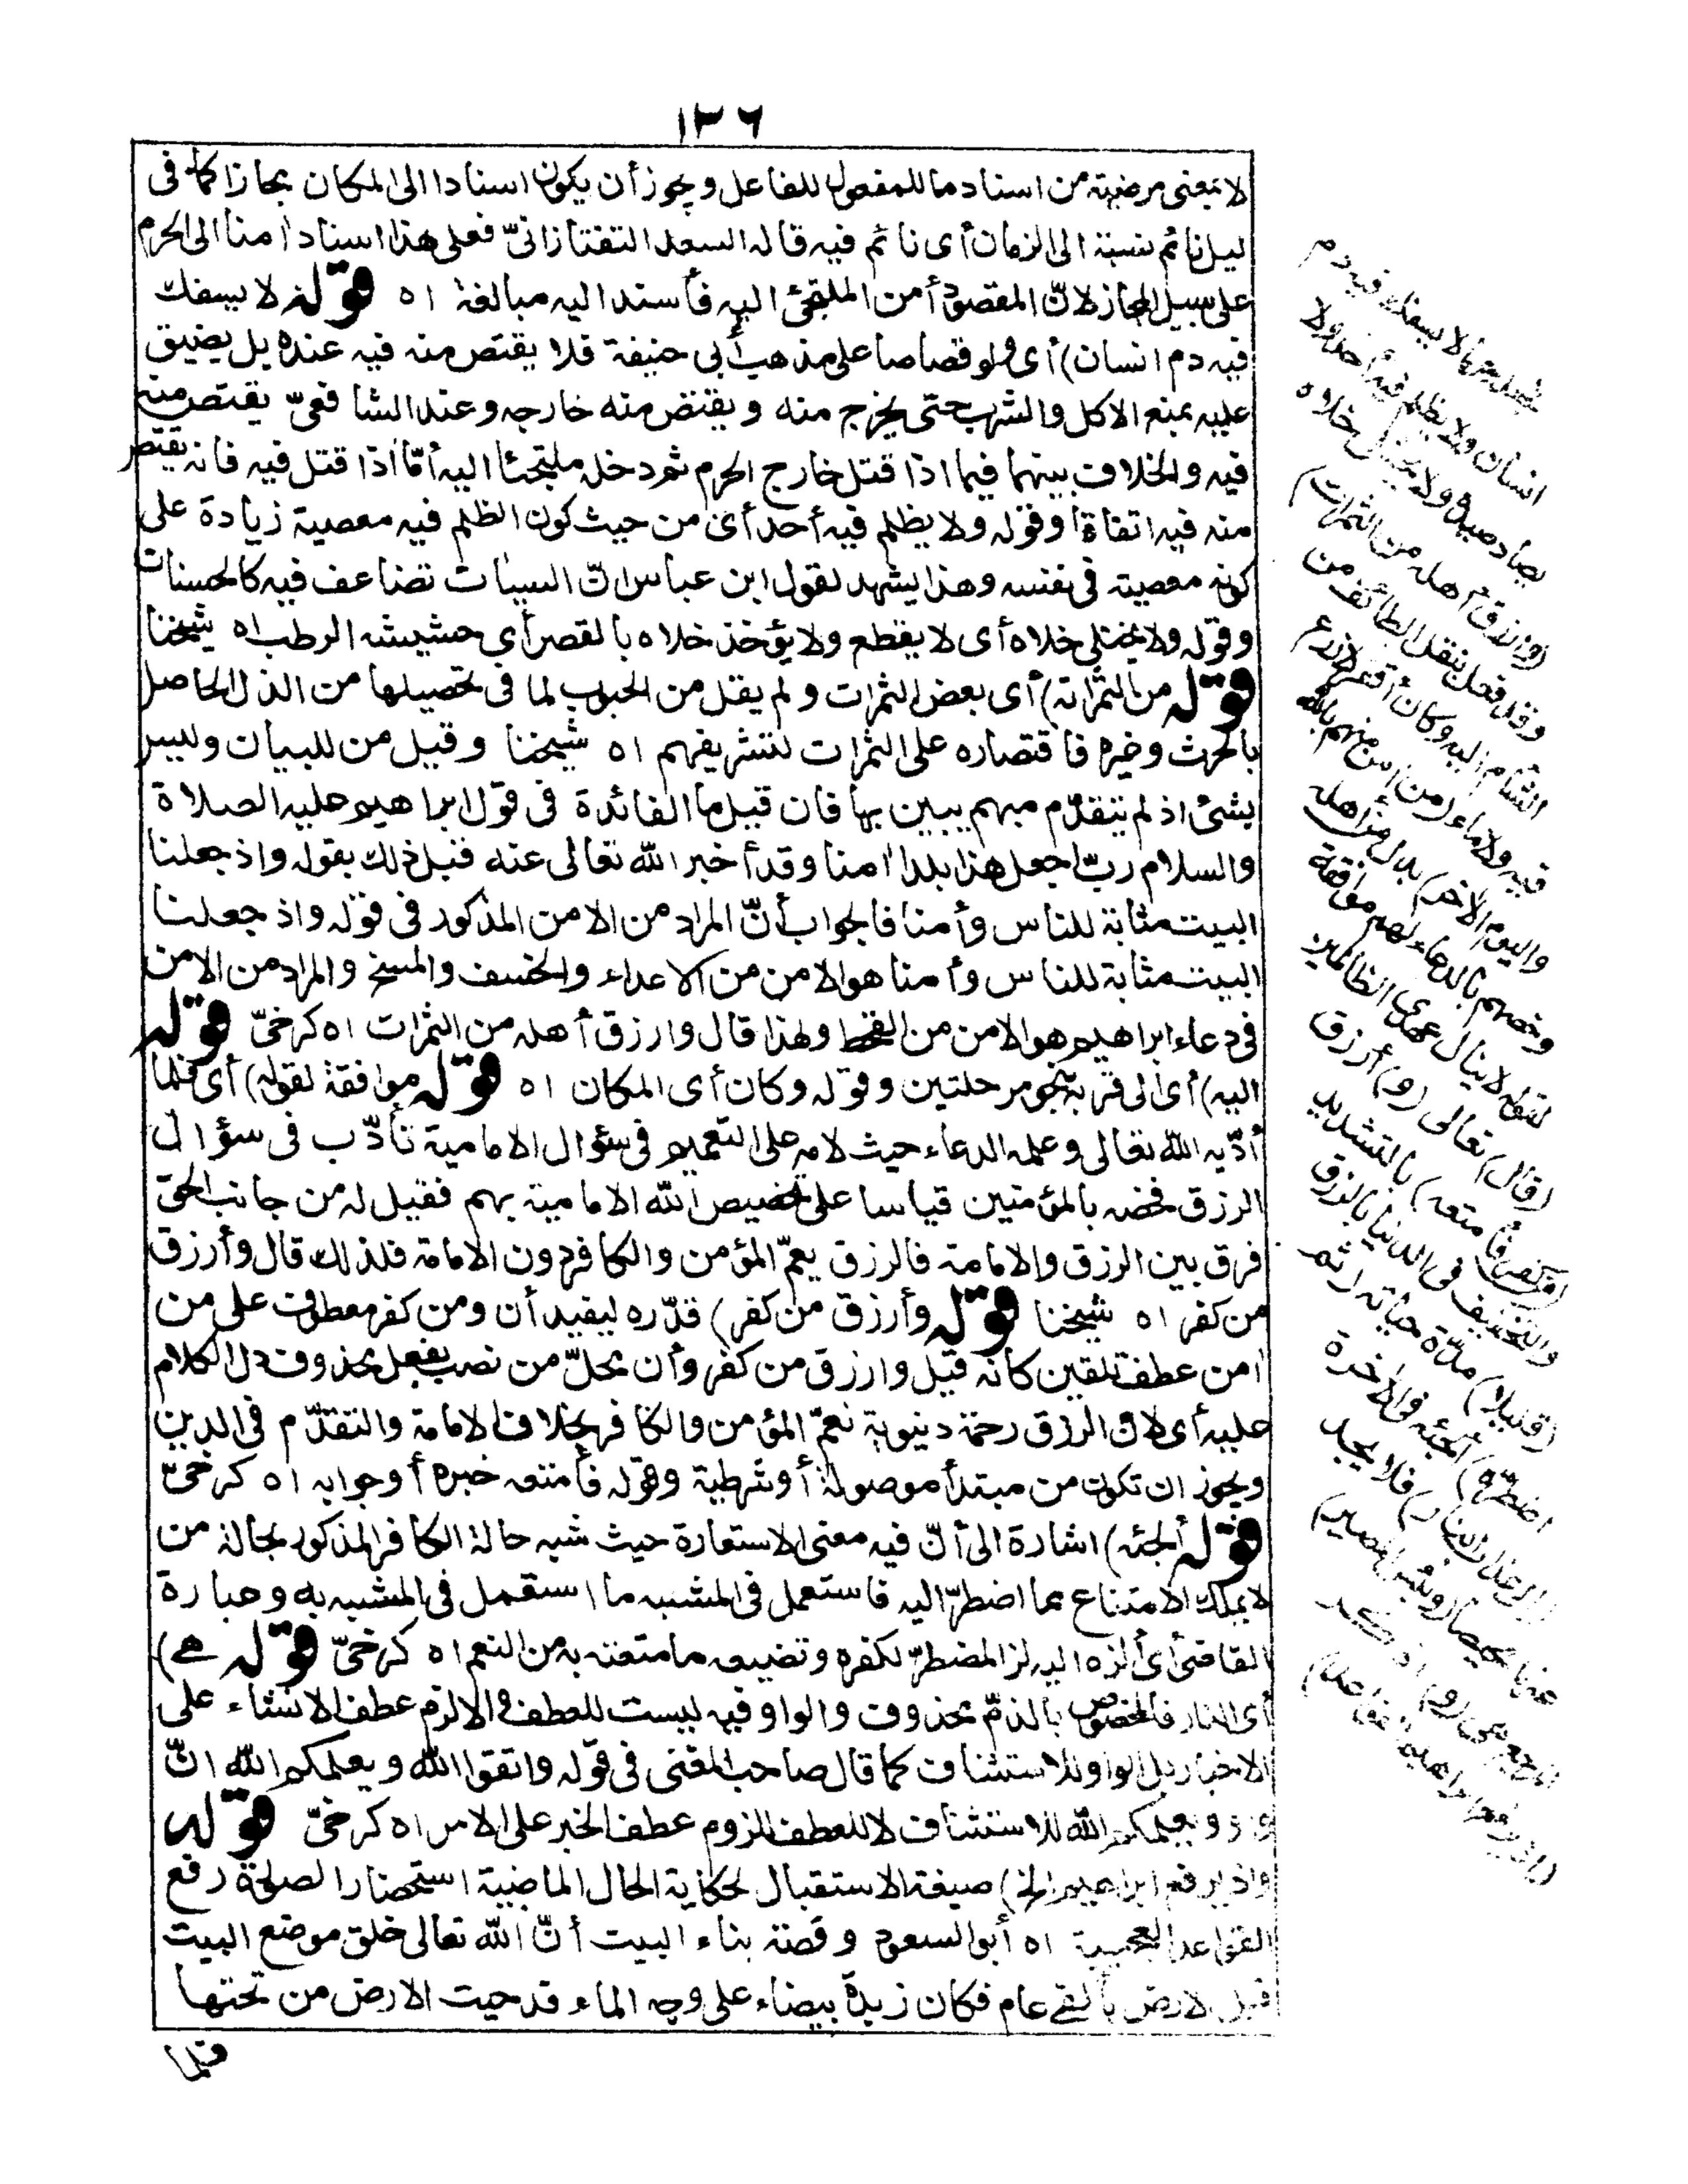 ١٣٦
لا بمعنى مرضية من اسناد ما للمفعول للفاعل ويجوز أن يكون اسنادا الى المكان مجازا كما فى
ليل نائم بنسبة الى الزمان أى نائم فيه قاله السعد التفتازانىّ فعلى هذا اسناد اٰمنا الى الحرم
على سبيل المجاز لانّ المقصود أمن الملتجئ اليه فأسند اليه مبالغة اه قوله لا يسفك
فيه دم انسان) أى ولو قصاصا على مذهب أبى حنيفة فلا يقتص منه فيه عنده بل يضيق
عليه بمنع الاكل والشرب حتى يخرج منه ويقتص منه خارجه وعند الشافعىّ يقتص منه
فيه والخلاف بينهما فيما اذا قتل خارج الحرم ثم دخله ملتجئا اليه أمّا اذا قتل فيه فانه يقتص
منه فيه اتفاقا وقوله ولا يظلم فيه أحد أى من حيث كون الظلم فيه معصية زيادة على
كونه معصية فى نفسه وهذا يشهد لقول ابن عباس انّ السيات تضاعف فيه كالحسنات
وقوله ولا يختلى خلاه أى لا يقطع ولا يؤخذ خلاه بالقصر أى حشيشه الرطب اه شيخنا
قوله من الثمرات) أى بعض الثمرات ولم يقل من الحبوب لما فى تحصيلها من الذل الحاصل
بالحرث وغيره فاقتصاره على الثمرات لتشريفهم اه شيخنا وقيل من للبيان وليس
بشئ اذ لم يتقدّم مبهم يبين بها فان قيل ما الفائدة فى قول ابراهيم عليه الصلاة
والسلام ربّ اجعل هذا بلدا اٰمنا وقد أخبر الله تعالى عنه قبل ذلك بقوله واذ جعلنا
البيت مثابة للناس وأمنا فالجواب أنّ المراد من الامن المذكور فى قوله واذ جعلنا
البيت مثابة للناس وأمنا هو الامن من الاعداء والخسف والمسخ والمراد من الامن
فى دعاء ابراهيم هو الامن من القحط ولهذا قال وارزق أهله من الثمرات اه كرخىّ قوله
اليه) أى الى قربه بنحو مرحلتين وقوله وكان أى المكان اه قوله موافقة لقوله) أى فلما
أدّبه الله تعالى وعلمه الدعاء حيث لامه على التعميم فى سؤال الامامية تأدّب فى سؤال
الرزق فخصه بالمؤمنين قياسا على تخصيص الله الامامية بهم فقيل له من جانب الحق
فرق بين الرزق والامامة فالرزق يعمّ المؤمن والكافر دون الامامة فلذلك قال وأرزق
من كفر اه شيخنا قوله وأرزق من كفر) قدّره ليفيد أن ومن كفر معطوف على من
اٰمن عطف تلقين كأنه قيل وارزق من كفر وأن محلّ من نصب بفعل محذوف دل الكلام
عليه أى لانّ الرزق رحمة دنيوية تعمّ المؤمن والكافر بخلاف الامامة والتقدّم فى الدين
ويجوز ان تكون من مبتدأ موصولة أو شرطية وقوله فأمتعه خبره أو جوابه اه كرخىّ
قوله ألجئه) اشارة الى أنّ فيه معنى الاستعارة حيث شبه حالة الكافر المذكور بحالة من
لا يملك الامتناع مما اضطرّ اليه فاستعمل فى المشبه ما استعمل فى المشبه به وعبارة
القاضى أى ألزه اليه لز المضطرّ لكفره وتضييعه ما متعته به من النعم اه كرخىّ قوله هى)
أى النار فالمخصوص بالذمّ محذوف والواو فيه ليست للعطف والا لزم عطف الانشاء على
الاخبار بل الواو للاستئناف كما قال صاحب المغنى فى قوله واتقوا الله ويعلمكم الله انّ
واو ويعلمكم الله للاستئناف لا للعطف للزوم عطف الخبر على الامر اه كرخىّ قوله
واذ يرفع ابراهيم الخ) صيغة الاستقبال لحكاية الحال الماضية استحضارا لصورة رفع
القواعد العجيبة اه أبو السعود وقصة بناء البيت أنّ الله تعالى خلق موضع البيت
قبل الارض بألفى عام فكان زبدة بيضاء على وجه الماء فدحيت الارض من تحتها
فلما
لا يسفك فيه دم
انسان ولا يظلم فيه أحد ولا
يصاد صيده ولا يختلى خلاه
(وارزق أهله من الثمرات)
وقد فعل بنقل الطائف من
الشام اليه وكان أقفر لا زرع
فيه ولا ماء (من اٰمن منهم بالله
واليوم الاٰخر) بدل من أهله
وخصهم بالدعاء لهم موافقة
لقوله لا ينال عهدى الظالمين
(قال) تعالى (و) أرزق
(من كفر فأمتعه) بالتشديد
والتخفيف فى الدنيا بالرزق
(قليلا) مدّة حياته (ثم
اضطرّه) ألجئه فى الاٰخرة
(الى عذاب النار) فلا يجد
عنها محيصا (وبئس المصير)
المرجع هى (و) اذكر
(اذ يرفع ابراهيم القواعد)